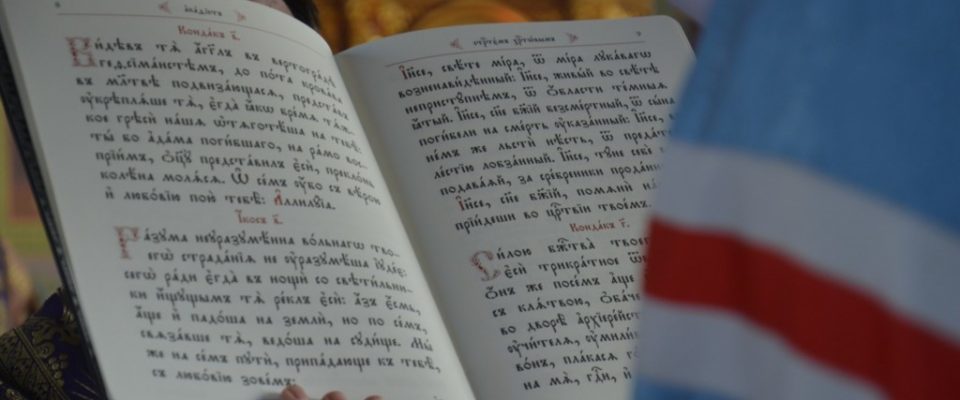 и҆ка́ѳїстъ
Конда́къ в҃.
Ви́дѣвъ тѧ̀ а҆́гг҃лъ въ вертогра́дѣ
геѳсїма́нстѣмъ, до по́та крова́ва
въ мл҃твѣ подвиза́ющасѧ, предста̀
ᲂу҆крѣплѧ́ше тѧ̀, є҆гда̀ ꙗ҆́кѡ бре́мѧ тѧ́ж-
кое грѣсѝ на́шѧ ѡ҆тѧготѣ́ша на тебѣ̀:
ты́ бо а҆да́ма поги́бшаго, на ра́мо вос-
прїи́мъ, ѻ҆ц҃ꙋ̀ предста́вилъ є҆сѝ, прекло́нь
кѡлѣ́на молѧ́сѧ. Ѡ҆ се́мъ ᲂу҆́бѡ съ вѣ́рою
и҆ любо́вїю пою̀ тебѣ̀: А҆ллилꙋ́їа.
І҆́косъ в҃.
Ра́зꙋма неꙋразꙋмѣ́нна во́льнагѡ тво-
егѡ̀ страда́нїѧ не ᲂу҆разꙋмѣ́ша і҆ꙋде́є:
сегѡ̀ ра́ди є҆гда̀ въ нощѝ со свѣти̑льни-
ки и҆́щꙋщымъ тѧ̀ ре́клъ є҆сѝ: а҆́зъ є҆́смь,
а҆́ще и҆ падо́ша на землѝ, но по се́мъ,
свѧза́вше тѧ̀, ведо́ша на сꙋди́ще. Мы́
же на се́мъ пꙋтѝ, припа́дающе къ тебѣ̀,
съ любо́вїю зове́мъ:
стрⷭ҇тє́мъ хрⷭ҇тѡ́вымъ
І҆и҃се, свѣ́те мі́ра, ѿ мі́ра лꙋка́вагѡ
возненави́дѣнный: І҆и҃се, живы́й во свѣ́тѣ
непристꙋ́пнѣмъ, ѿ ѻ҆́бласти те́мныѧ
ꙗ҆́тый. І҆и҃се, сн҃е бж҃їй безсме́ртный, ѿ сы́на
поги́бели на сме́рть ᲂу҆ка́занный: І҆и҃се, въ
не́мъ же льстѝ нѣ́сть, ѿ преда́телѧ
ле́стїю лобза́нный. І҆и҃се, тꙋ́не себѐ
подава́ѧй, за сре́бренники про́данный
І҆и҃се, сн҃е бж҃їй, помѧнѝ на́съ
прїи́деши во црⷭ҇твїи твое́мъ.
Конда́къ г҃.
Си́лою бж҃тва̀ твоегѡ̀
є҆сѝ трикра́тное ѿ
Ѻ҆́нъ же посе́мъ а҆́ще
съ клѧ́твою, ѻ҆ба́че
во дворѣ̀ а҆рхїере́йстѣмъ
ᲂу҆чи́телѧ, ᲂу҆мили́сѧ
во́нъ, пла́касѧ го́рькѡ
на мѧ̀, гдⷭ҇и, и҆